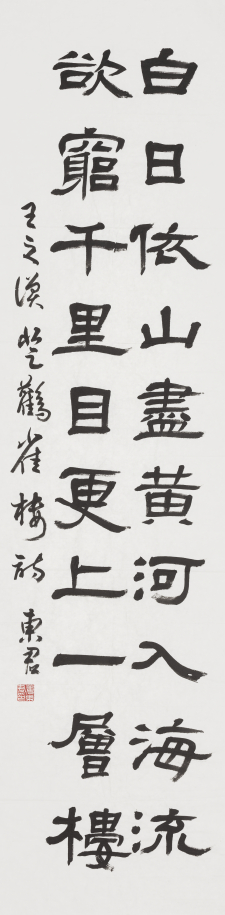 白日依山盡黃河入海流
欲窮千里目更上一層樓
王之渙登鸛雀樓詩 東君